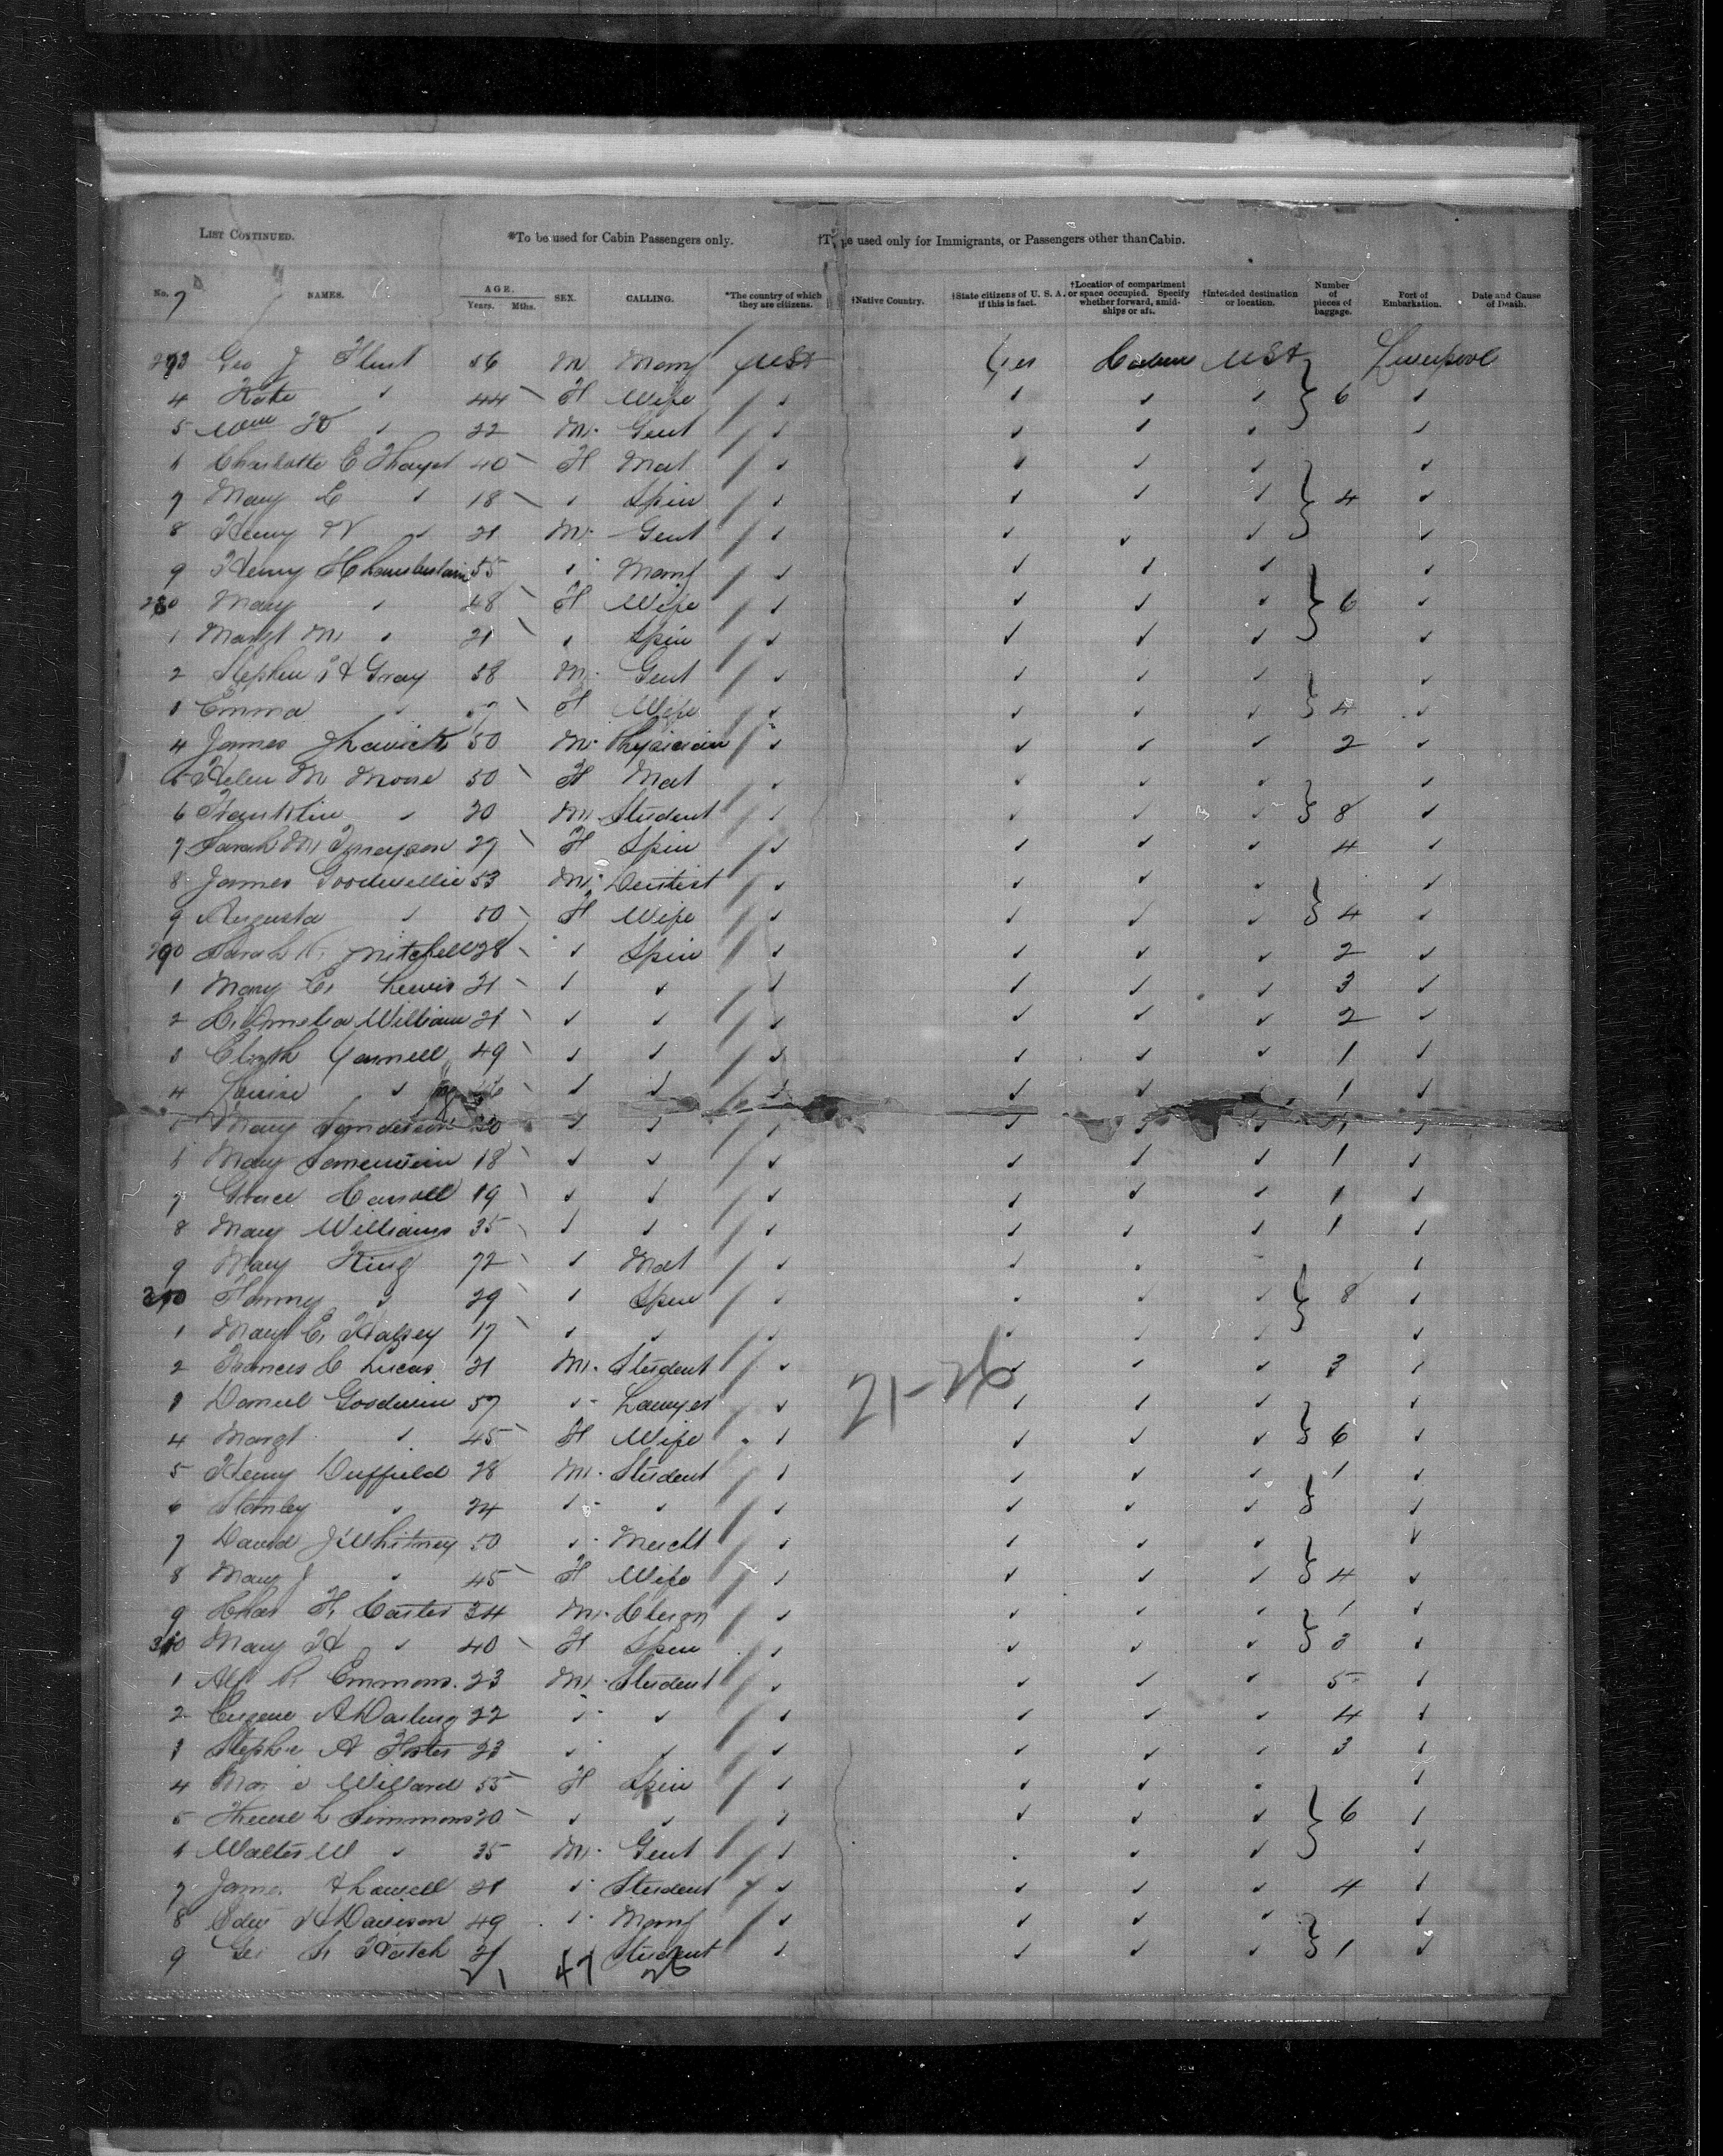 LIST CONTINUED. *To be used for Cabin Passengers only. †To be used only for Immigrants, or Passengers other than Cabin.
No. 7 NAMES. AGE. Years. Mths. SEX. CALLING. *The country of which they are citizens. †Native Country. †State citizens of U. S. A. if this is fact. †Location of compartment or space occupied. Specify whether forward, amidships or aft. †Intended destination or location. Number of pieces of baggage. Port of Embarkation. Date and Cause of Death.
273 Geo J Flint 56 M Manf USA Yes Cabin USA Liverpool
4 Kate ✓ 44 F Wife ✓ ✓ ✓ ✓ 6 ✓
5 Wm ✓ 22 M. Gent ✓ ✓ ✓ ✓ ✓
6 Charlotte E Thayer 40 F Mat ✓ ✓ ✓ ✓ ✓
7 Mary E ✓ 18 ✓ Spin ✓ ✓ ✓ ✓ 4 ✓
8 Henry N ✓ 21 M. Gent ✓ ✓ ✓ ✓ ✓
9 Henry Chamberlain 55 ✓ Manf ✓ ✓ ✓ ✓ ✓
280 Mary ✓ 48 F Wife ✓ ✓ ✓ ✓ 6 ✓
1 Margt M ✓ 21 ✓ Spin ✓ ✓ ✓ ✓ ✓
2 Stephen Gray 58 M. Gent ✓ ✓ ✓ ✓ ✓
3 Emma ✓ F Wife ✓ ✓ ✓ ✓ 4 ✓
4 James 50 M. Physician ✓ ✓ ✓ ✓ 2 ✓
5 Helen M Morse 50 F Mat ✓ ✓ ✓ ✓ ✓
6 Franklin ✓ 20 M. Student ✓ ✓ ✓ ✓ 8 ✓
7 Sarah M 29 F Spin ✓ ✓ ✓ ✓ 4 ✓
8 James Goodwillie 53 M. Dentist ✓ ✓ ✓ ✓ ✓
9 Augusta ✓ 50 F Wife ✓ ✓ ✓ ✓ 4 ✓
290 Sarah Mitchell 28 ✓ Spin ✓ ✓ ✓ ✓ 2 ✓
1 Mary E. Lewis 21 ✓ ✓ ✓ ✓ ✓ ✓ 3 ✓
2 Amelia William 21 ✓ ✓ ✓ ✓ ✓ ✓ 2 ✓
3 Elizth Yarnell 49 ✓ ✓ ✓ ✓ ✓ ✓ 1 ✓
4 Louise ✓ 46 ✓ ✓ ✓ ✓ ✓ ✓ 1 ✓
5 Mary Sanderson 20 ✓ ✓ ✓ ✓ ✓ ✓ 1 ✓
6 Mary 18 ✓ ✓ ✓ ✓ ✓ ✓ 1 ✓
7 Grace Carroll 19 ✓ ✓ ✓ ✓ ✓ ✓ 1 ✓
8 Mary Williams 35 ✓ ✓ ✓ ✓ ✓ ✓ 1 ✓
9 Mary King 72 ✓ Mat ✓ ✓ ✓ ✓
300 Fanny ✓ 29 ✓ Spin ✓ ✓ ✓ ✓ 8 ✓
1 Mary E. Halsey 17 ✓ ✓ ✓ ✓ ✓ ✓ ✓
2 Frances C Lucas 21 M. Student ✓ ✓ ✓ ✓ 3 ✓
21-26
3 Daniel Goodwin 57 ✓ Lawyer ✓ ✓ ✓ ✓ ✓
4 Margt ✓ 45 F Wife ✓ ✓ ✓ ✓ 6 ✓
5 Henry Duffield 28 M. Student ✓ ✓ ✓ ✓ 1 ✓
6 Stanley ✓ 24 ✓ ✓ ✓ ✓ ✓ ✓ ✓
7 David J Whitney 50 ✓ Mercht ✓ ✓ ✓ ✓ ✓
8 Mary J ✓ 45 F Wife ✓ ✓ ✓ ✓ 4 ✓
9 Chas F. Carter 34 M. Clergn ✓ ✓ ✓ ✓ 1 ✓
310 Mary H ✓ 40 F Spin ✓ ✓ ✓ ✓ 3 ✓
1 Alf R. Emmons. 23 M. Student ✓ ✓ ✓ ✓ 5 ✓
2 Eugene A Darling 22 ✓ ✓ ✓ ✓ ✓ ✓ 4 ✓
3 Stephen A Foster 23 ✓ ✓ ✓ ✓ ✓ ✓ 3 ✓
4 Willard 55 F Spin ✓ ✓ ✓ ✓ ✓
5 L Simmons 20 ✓ ✓ ✓ ✓ ✓ ✓ 6 ✓
6 Walter W ✓ 35 M. Gent ✓ ✓ ✓ ✓
7 James 21 ✓ Student ✓ ✓ ✓ ✓ 4 ✓
8 Davison 49 ✓ Manf ✓ ✓ ✓ ✓ ✓
9 Geo S. Hatch 21 Student ✓ ✓ ✓ ✓ 1 ✓
21 47 26